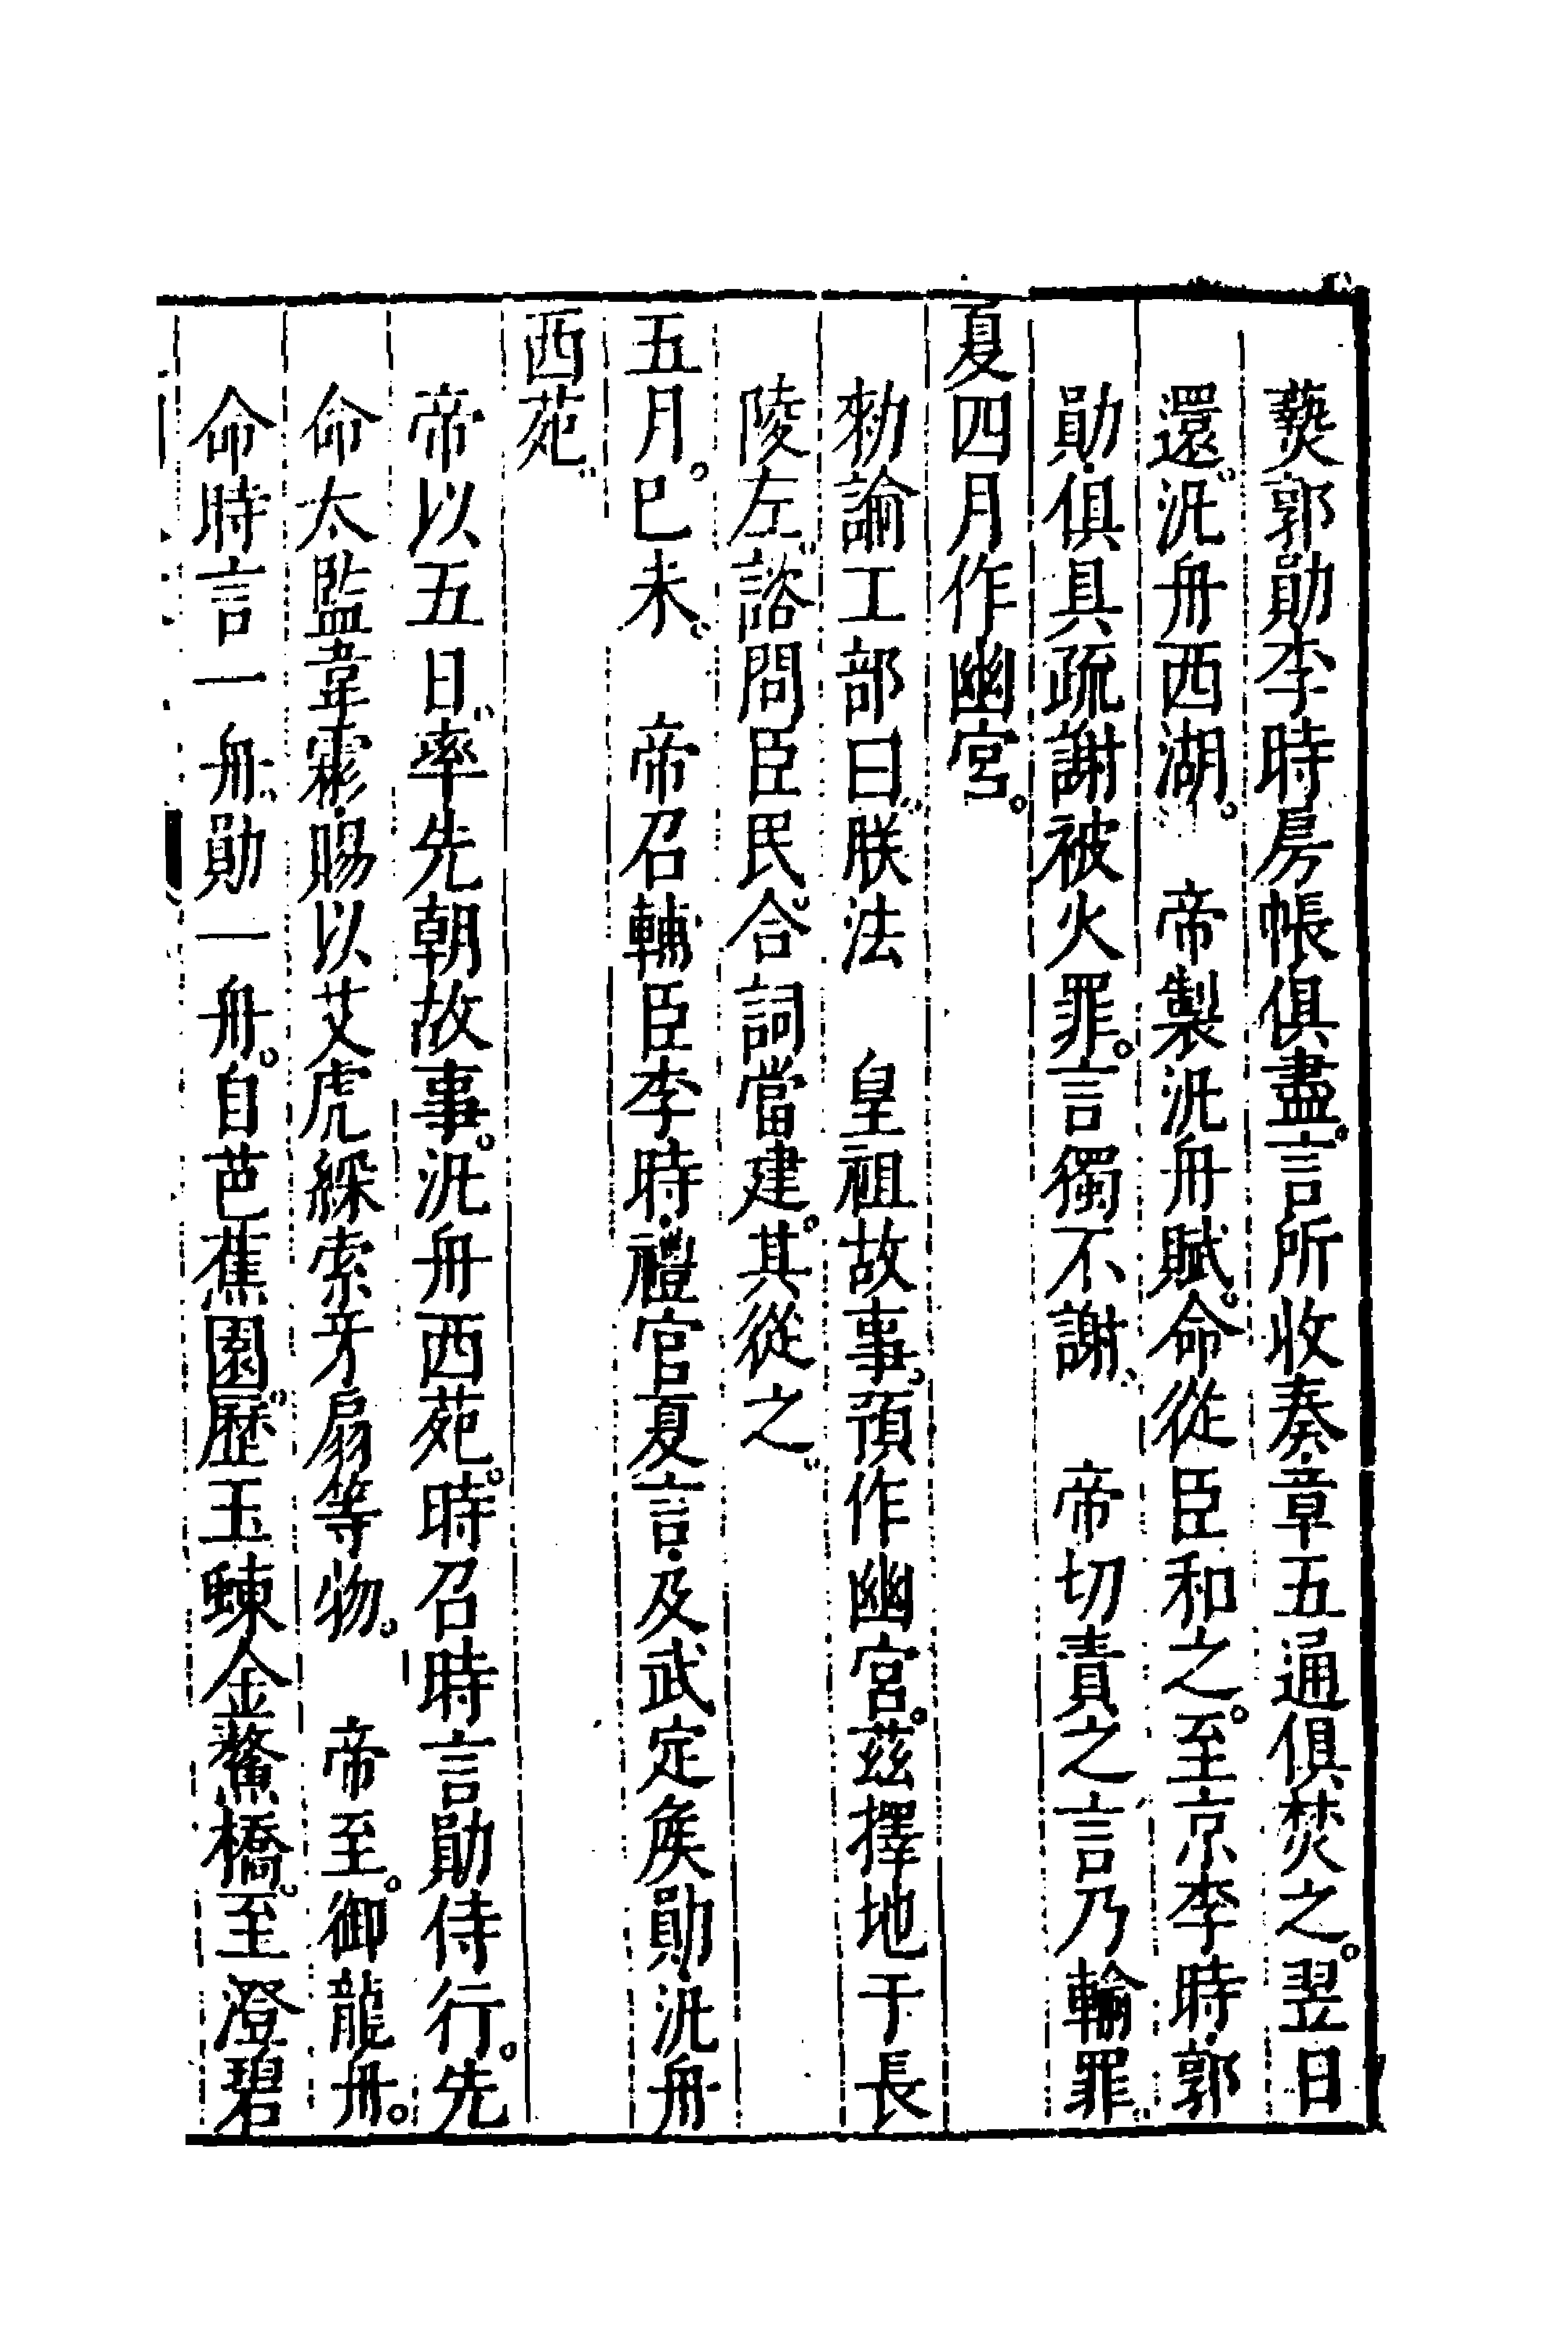 爇郭勛李時房帳俱盡言所收奏章五通俱焚之翌日
還汎舟西湖　帝製汎舟賦命從臣和之至京李時郭
勛俱具疏謝被火罪言獨不謝　帝切責之言乃輸罪
夏四月作幽宮
勑諭工部曰朕法　皇祖故事預作幽宮茲擇地于長
陵左諮問臣民合詞當建其從之
五月己未　帝召輔臣李時禮官夏言及武定侯勛汎舟
西苑
帝以五日率先朝故事汎舟西苑時召時言勛侍行先
命太監韋霦賜以艾虎綵索牙扇等物　帝至御龍舟
命時言一舟勛一舟自芭蕉園歷玉蝀金鰲橋至澄碧